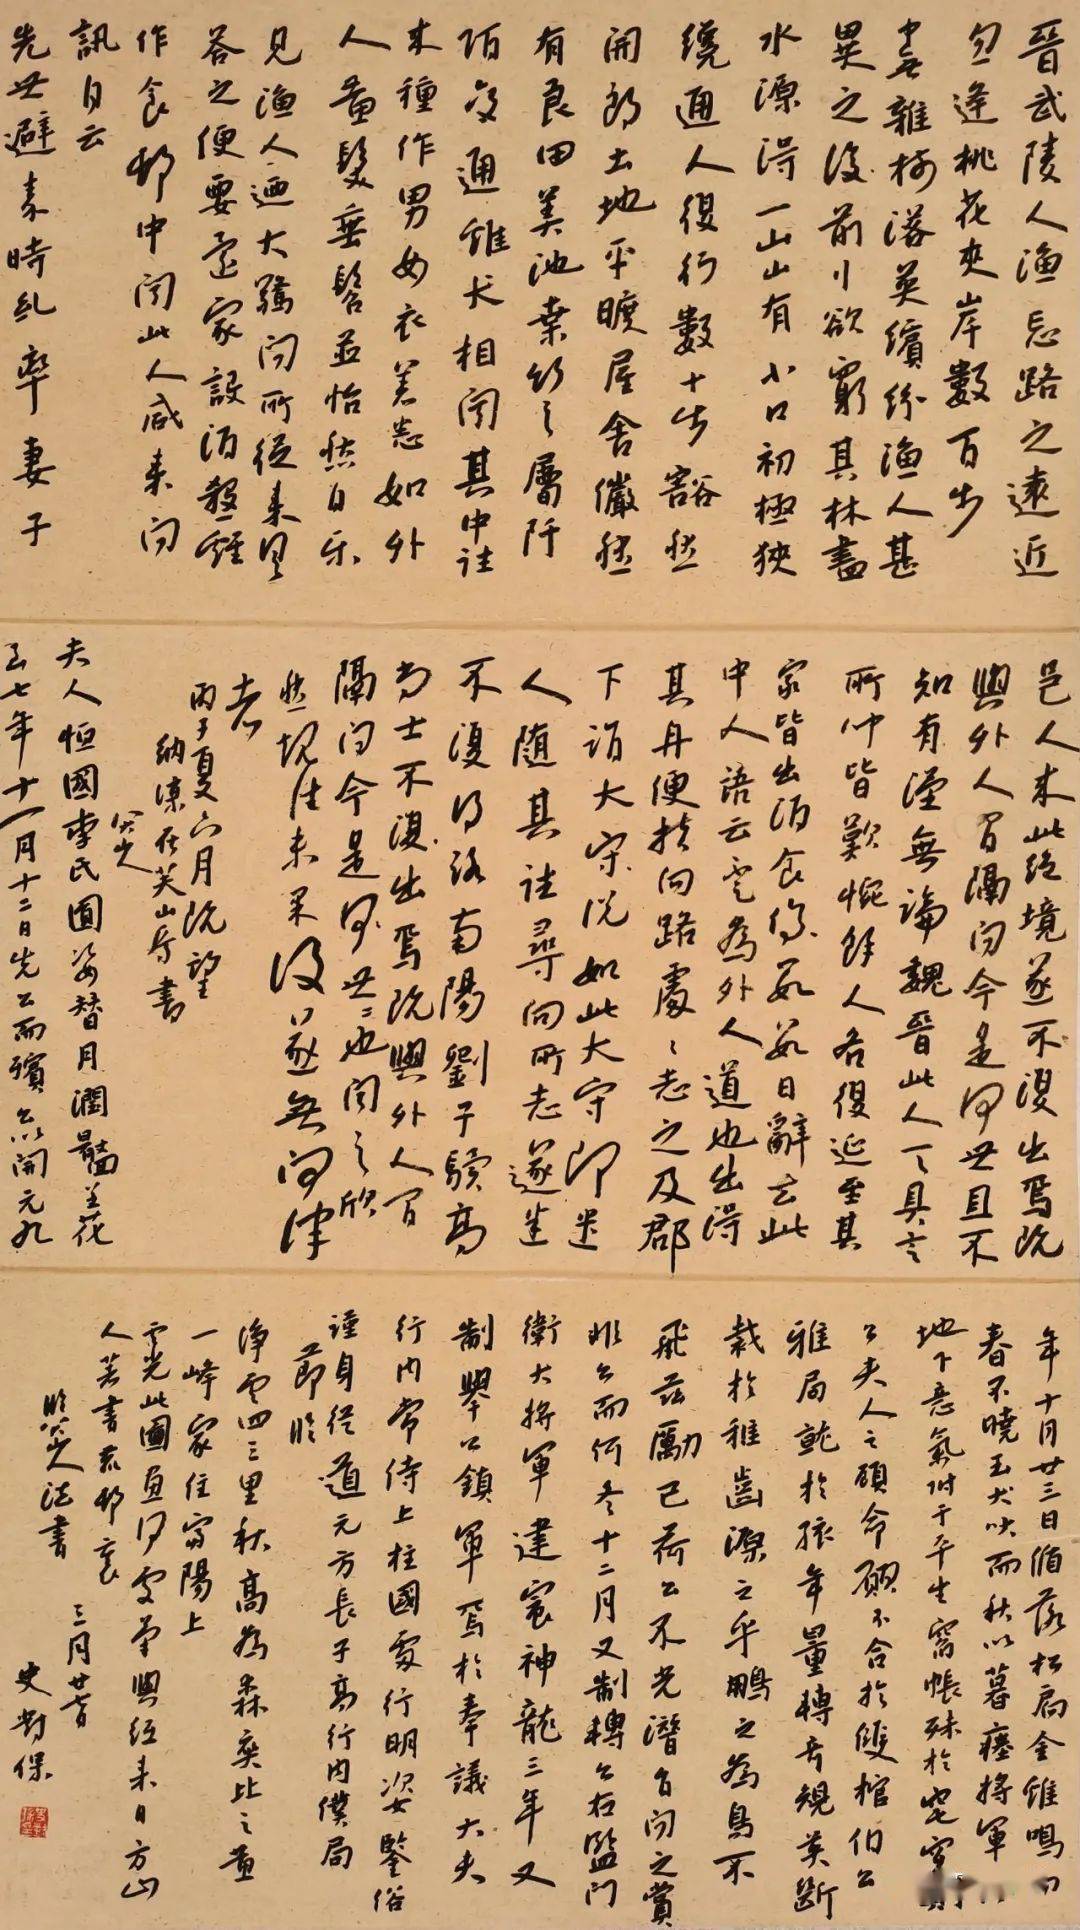 晉武陵人漁忘路之遠近
忽逢桃花夾岸數百步
雜樹落英繽紛漁人甚
異之後前行欲窮其林盡
水源得一山山有小口初極狹
纔通人復行數十步豁然
開朗土地平曠屋舍儼然
有良田美池桑竹之屬阡
陌交通雞犬相聞其中往
來種作男女衣著悉如外
人黃髮垂髫並怡然自樂
見漁人迺大驚問所從來具
答之便要還家設酒殺雞
作食邨中聞此人咸來問
訊自云
先世避秦時亂率妻子
邑人來此絕境遂不復出焉既
與外人間隔問今是何世且不
知有漢無論魏晉此人一一具言
所聞皆歎惋餘人各復延至其
家皆出酒食停數日辭去此
中人語云不為外人道也出得
其舟便扶向路處〻志之及郡
下詣太守說如此太守即遣
人隨其往尋向所志遂迷
不復得路南陽劉子驥高
尚士不復出焉既與外人間
隔問今是何世〻也聞之欣
然規往未果後遂無問津
者
丙子夏六月既望
納涼在芙山房書
八大山
夫人恒國李氏圓姿替月潤臉呈花
云七年十一月十二日先公而殯公以開元九
年十月廿三日循落松扃金雞鳴而
春不曉玉犬吠而秋以暮瘞將軍
地下意氣附于平生寘帳殊於
公夫人之顧命願不合於雙棺伯公
雅局就於孩年量轉奇規英斷
裁於稚齒源之乎鵬之為鳥不
飛茲勵己荷公不光潛自問之賞
非公而何冬十二月又制轉公右監門
衛大將軍建宸神龍三年又
制舉公鎮軍焉於奉議大夫
行內常侍上柱國處行明姿鑒俗
謹身從道元方長子高行內僕局
節臨
淨雲四三里秋高為森爽比之黃
一峰家住富陽上
雪光此圖畫何處筆與經未日方山
人若書
臨八大山人法書
三月廿
史對保